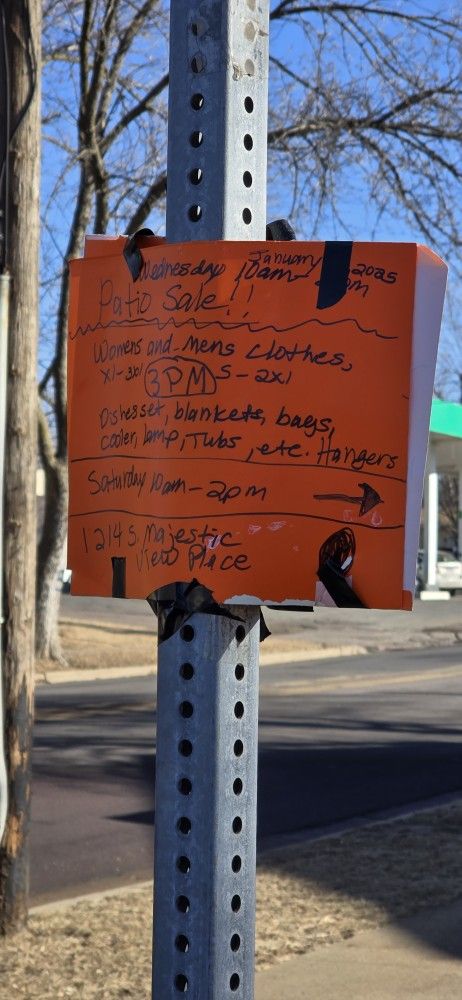 January 2025
Wednesday 10am- pm
Patio Sale!!
Womens and Mens clothes,
xl-3xl 3PM S-2xl
Dishesset, blankets, bags,
cooler, lamp, Tubs, etc. Hangers
Saturday 10am-2pm
1214 S. Majestic
View Place